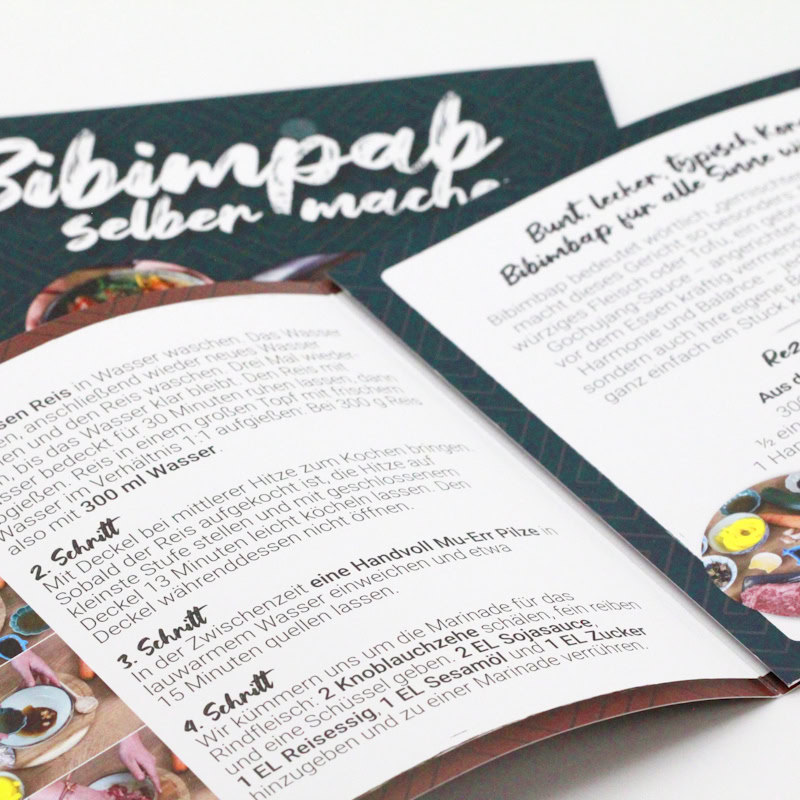 Bibimpap
selber mache
sen Reis in Wasser waschen. Das Wasser
en, anschließend wieder neues Wasser
en und den Reis waschen. Drei Mal wieder-
n, bis das Wasser klar bleibt. Den Reis mit
sser bedeckt für 30 Minuten ruhen lassen, dann
bgießen. Reis in einem großen Topf mit frischem
Wasser im Verhältnis 1:1 aufgießen: Bei 300 g Reis
also mit 300 ml Wasser.
2. Schnitt
Mit Deckel bei mittlerer Hitze zum Kochen bringen.
Sobald der Reis aufgekocht ist, die Hitze auf
kleinste Stufe stellen und mit geschlossenem
Deckel 13 Minuten leicht köcheln lassen. Den
Deckel währenddessen nicht öffnen.
3. Schnitt
In der Zwischenzeit eine Handvoll Mu-Err Pilze in
lauwarmem Wasser einweichen und etwa
15 Minuten quellen lassen.
4. Schnitt
Wir kümmern uns um die Marinade für das
Rindfleisch: 2 Knoblauchzehe schälen, fein reiben
und eine Schüssel geben. 2 EL Sojasauce,
1 EL Reisessig, 1 EL Sesamöl und 1 EL Zucker
hinzugeben und zu einer Marinade verrühren.
Bunt, lecker, typisch Kor
Bibimbap für alle Sinne wi
Bibimbap bedeutet wörtlich „gemischter
macht dieses Gericht so besonders:
würziges Fleisch oder Tofu, ein gebra
Gochujang-Sauce – angerichtet
vor dem Essen kräftig vermeng
Harmonie und Balance –
sondern auch ihre eigene B
ganz einfach ein Stück K
Reze
Aus d
300
½ ein
1 Han